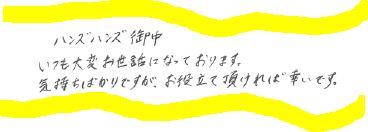 ハンズハンズ御中
いつも大変お世話になっております。
気持ちばかりですが、お役立て頂ければ幸いです。